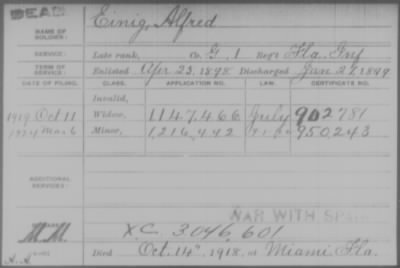 DEAD
NAME OF SOLDIER: Einig, Alfred
SERVICE: Late rank, Co. G, 1 Reg't Fla. Inf
TERM OF SERVICE: Enlisted Apr 23, 1898 Discharged Jan 27, 1899
DATE OF FILING. CLASS. APPLICATION NO. LAW. CERTIFICATE NO.
Invalid,
1919 Oct 11 Widow, 1147,466 July 902781
1924 Mar 6 Minor, 1,216,442 950,243
ADDITIONAL SERVICES:
WAR WITH SPAIN
M.M. XC. 3046,601
Died Oct. 14th, 1918, at Miami, Fla.
A.A.